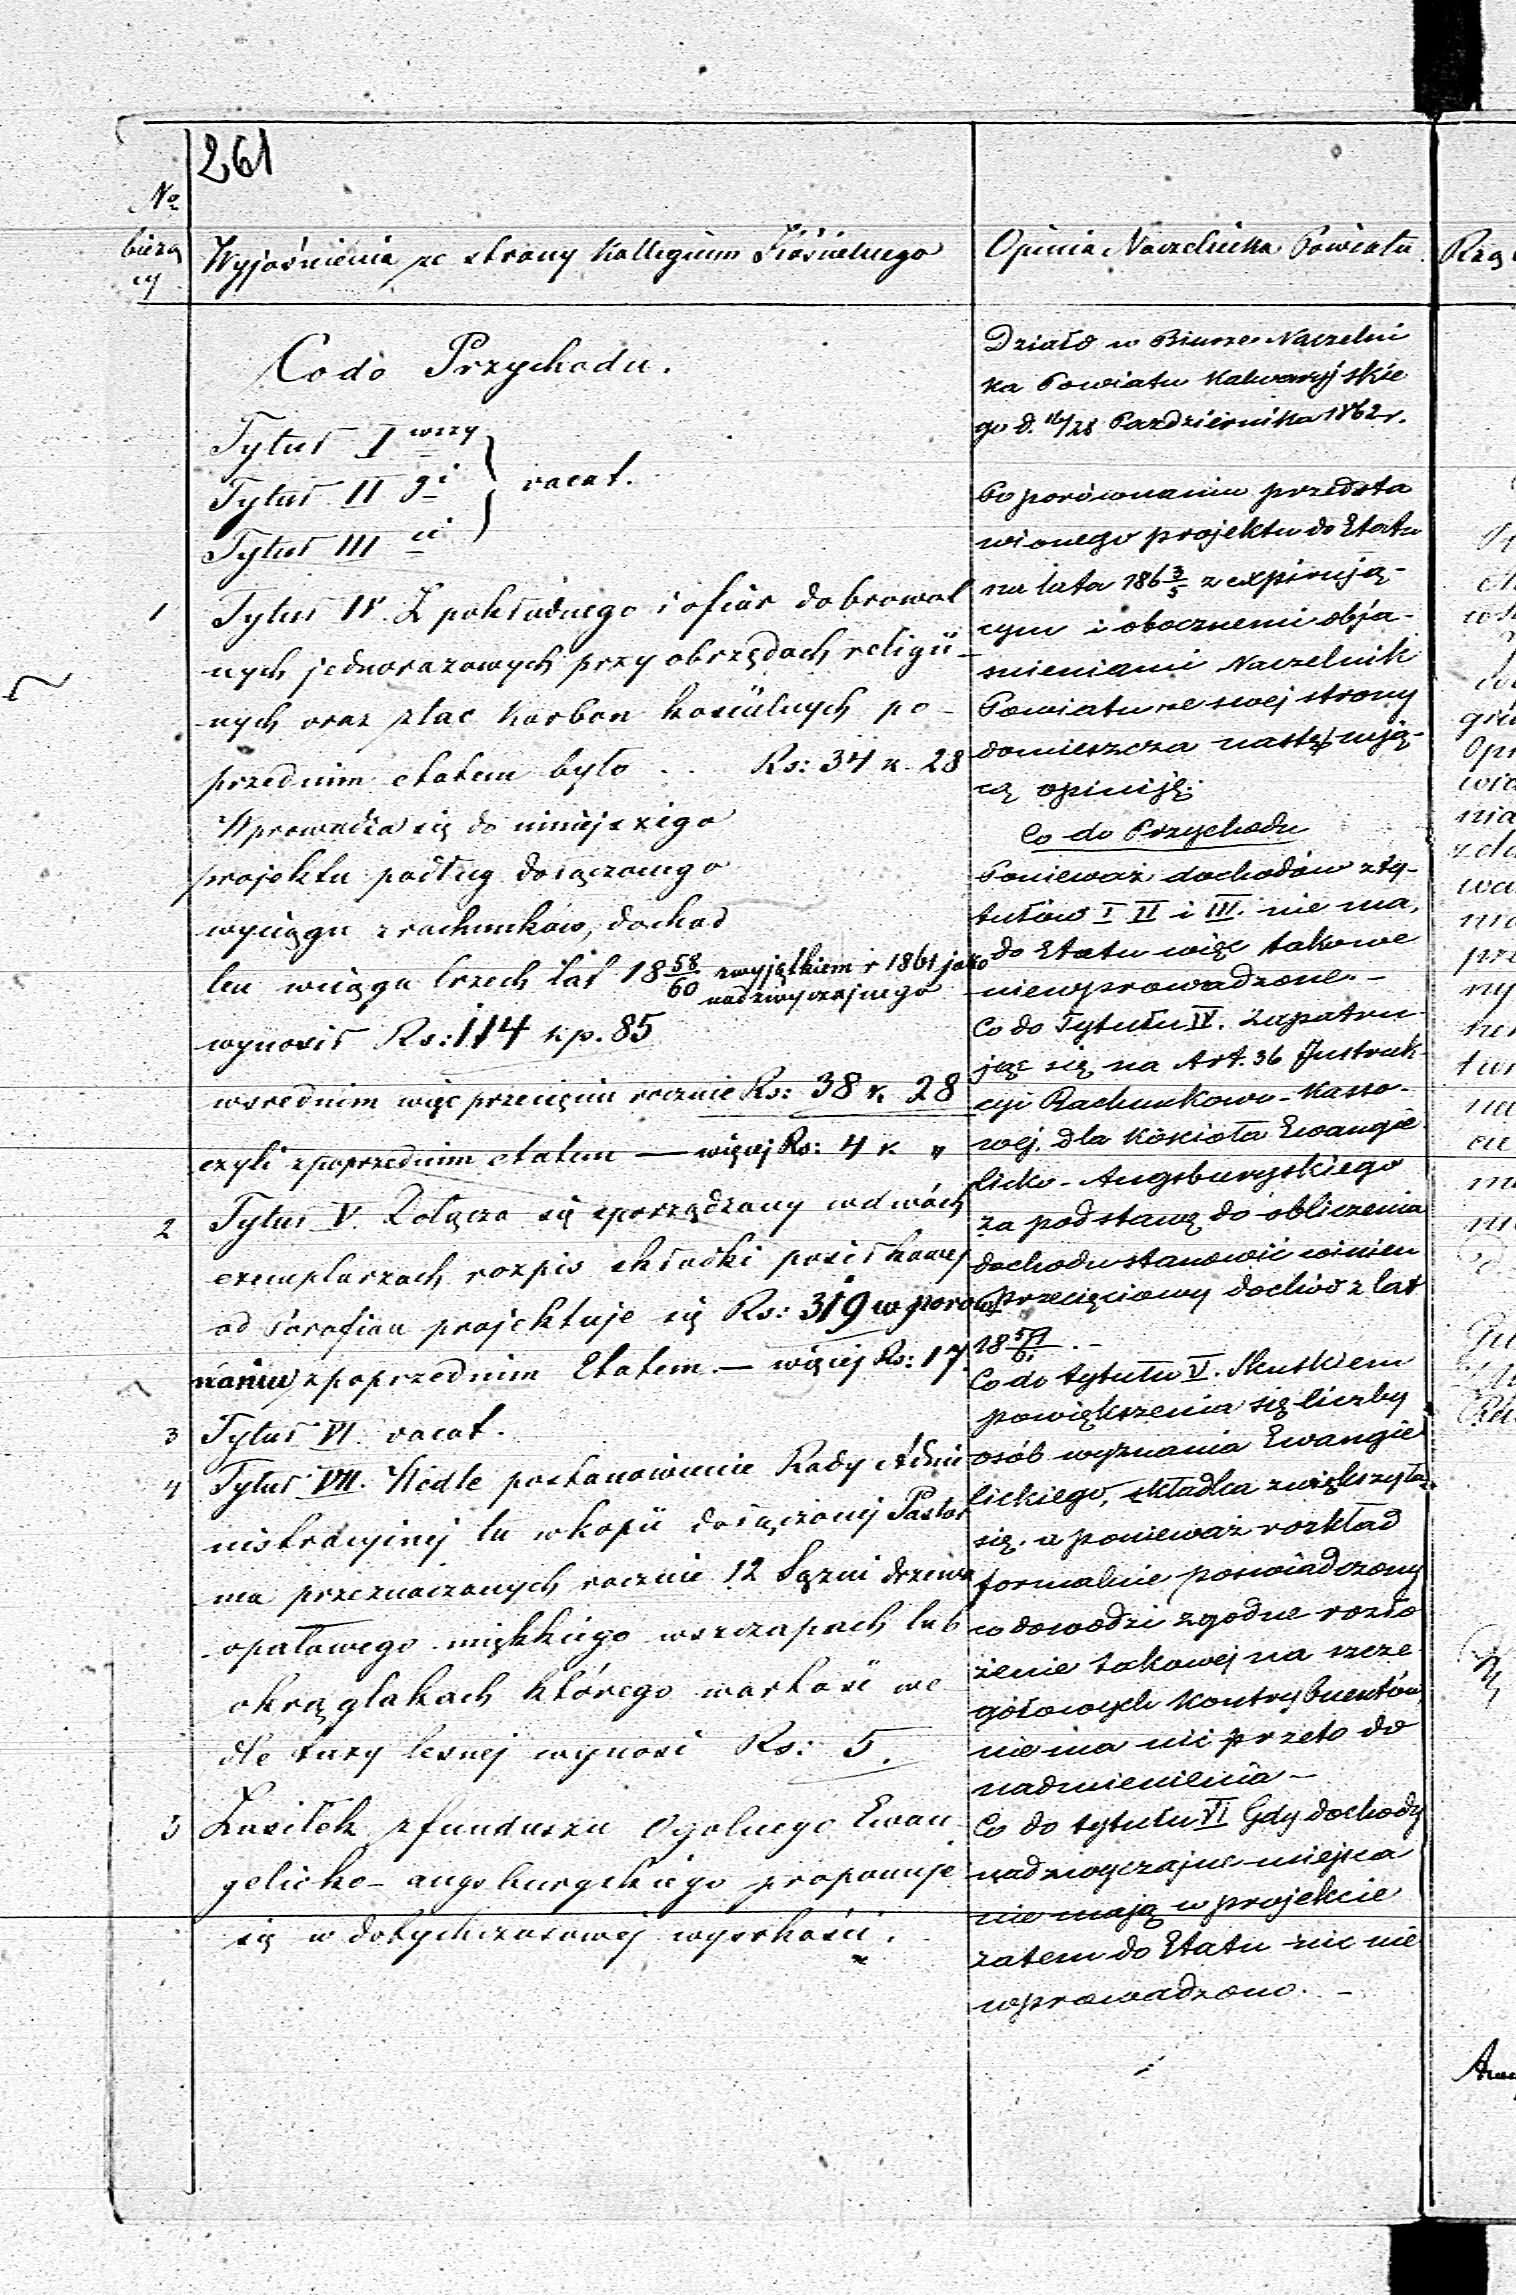 261
No
bieżą
cy
Wyjaśnienia ze strony Kollegium Kościelnego
Co do Przychodu.
Tytuł I wszy
Tytuł II gi
vacat.
Tytuł III ci
1 Tytuł IV. Z pokładnego i ofiar dobrowol
nych jednorazowych przy obrzędach religij-
nych oraz z tac karbon kościelnych po-
przednim etatem było .. Rs: 34 k. 28
Wprowadza się do niniejszego
projektu podług dołączonego
wyciągu z rachunków, dochód
ten w ciągu trzech lat 18 58/60 z wyjątkiem r 1861 jako
nadzwyczajnego
wynosił Rs: 114 kp. 85
w średnim więc przecięciu rocznie Rs: 38 k 28
czyli z poprzednim etatem — więcej Rs: 4 k "
2 Tytuł V. Dołącza się sporządzony w dwóch
exemplarzach rozpis składki posiłkowej
od Parafian projektuje się Rs: 319 w porów
naniu z poprzednim Etatem. — więcej Rs: 17.
3 Tytuł VI. vacat.
4 Tytuł VII. Wedle postanowienie Rady Admi
nistracyjnej tu w kopii dołączonej Pastor
ma przeznaczonych rocznie 12 Sążni drzewa
opałowego miękkiego w szczapach lub
okrąglakach którego wartość we
dle taxy lesnej wynosi Rs: 5.
5 Zasiłek z funduszu Ogólnego Ewan
gelicko-augsburgskiego proponuje
się w dotychczasowej wysokości.
Opinia Naczelnika Powiatu
Działo w Biurze Naczelni
ka Powiatu Kalwaryjskie
go d. 16/28 Pazdziernika 1862 r.
Po porównaniu przedsta
wionego projektu do Etatu
na lata 186 3/5 z expirują-
cym i obocznemi obja-
śnieniami Naczelnik
Powiatu ze swej strony
domieszcza następują-
cą opiniję:
Co do Przychodu
Ponieważ dochodów z ty-
tułów I II i III. nie ma,
do Etatu więc takowe
niewprowadzone. —
Co do Tytułu IV. Zapatru-
jąc się na Art. 36 Instruk-
cyi Rachunkowo-Kasso-
wej dla Kościoła Ewangie
licko-Augsburgskiego
za podstawę do obliczenia
dochodu stanowić winien
przecięciowy dochód z lat
18 59/61. —
Co do tytułu V. Skutkiem
powiększenia się liczby
osób wyznania Ewangie
lickiego, składka zwiększyła
się. a ponieważ rozkład
formalnie poswiadczony
co dowodzi zgodne rozło
żenie takowej na szcze
gółowych Kontrybuentów
nie ma nic przeto do
nadmienienia —
Co do tytułu VI Gdy dochody
nadzwyczajne miejsca
nie mają w projekcie
zatem do Etatu nic nie
wprowadzono. —